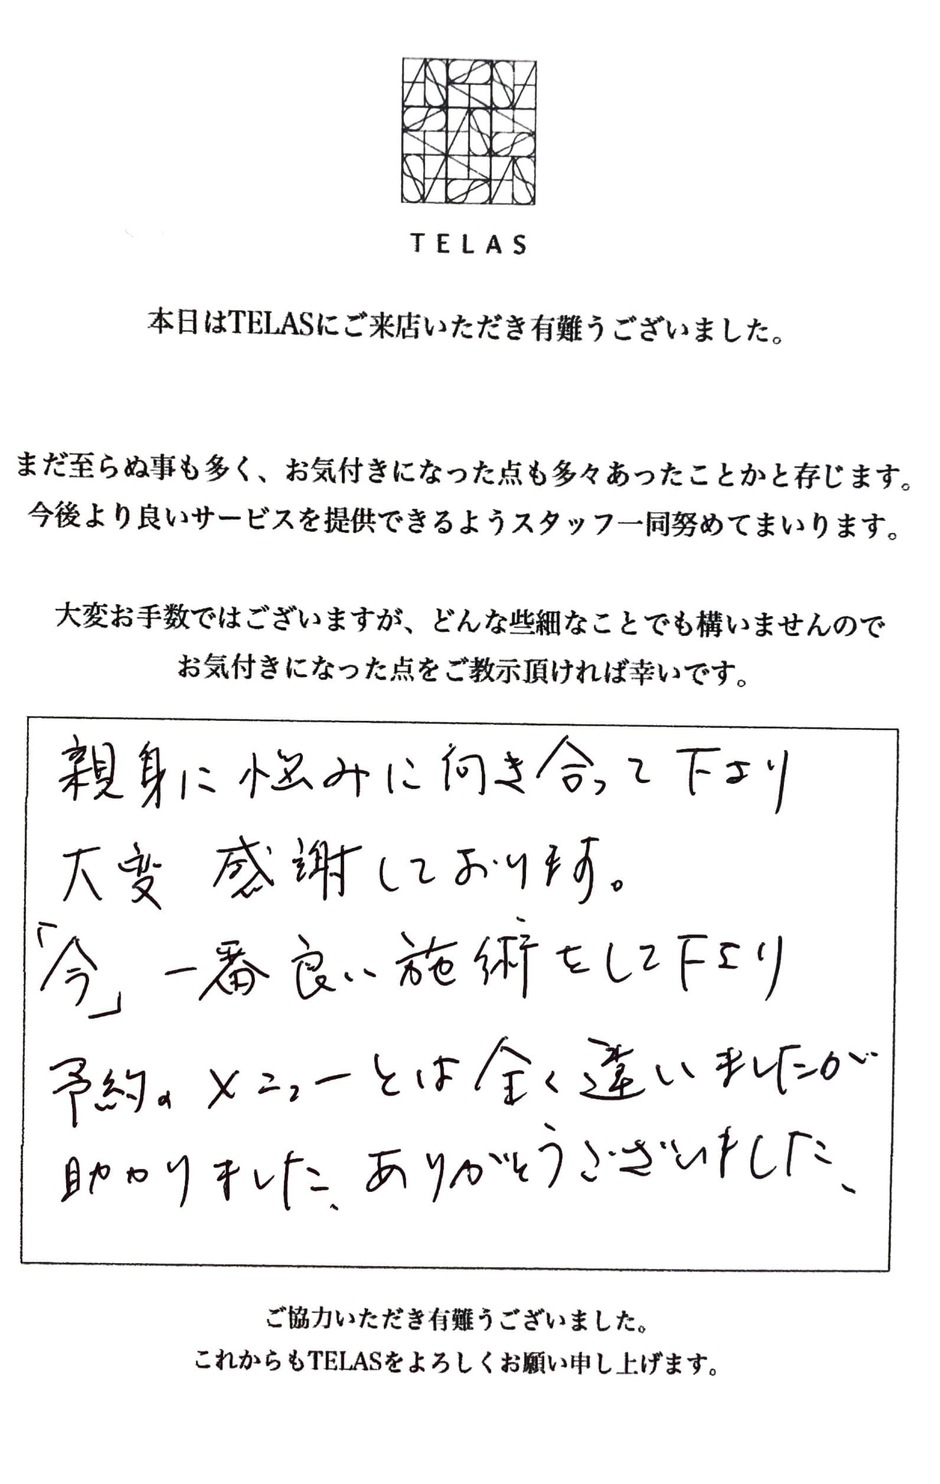 TELAS
本日はTELASにご来店いただき有難うございました。
まだ至らぬ事も多く、お気付きになった点も多々あったことかと存じます。
今後より良いサービスを提供できるようスタッフ一同努めてまいります。
大変お手数ではございますが、どんな些細なことでも構いませんので
お気付きになった点をご教示頂ければ幸いです。
親身に悩みに向き合って下より
大変 感謝しております。
「今」一番良い施術をして下より
予約のメニューとは全く違いましたが
助かりました、ありがとうございました、
ご協力いただき有難うございました。
これからもTELASをよろしくお願い申し上げます。